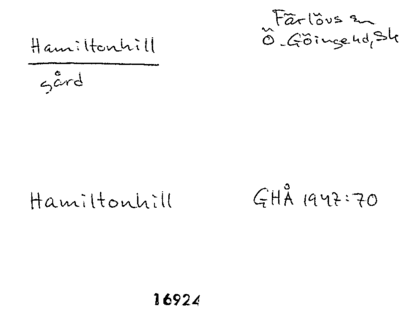 Hamiltonhill
gård
Färlövs sn
Ö. Göinge hd, Sk
Hamiltonhill
GHÅ 1947:70
16924